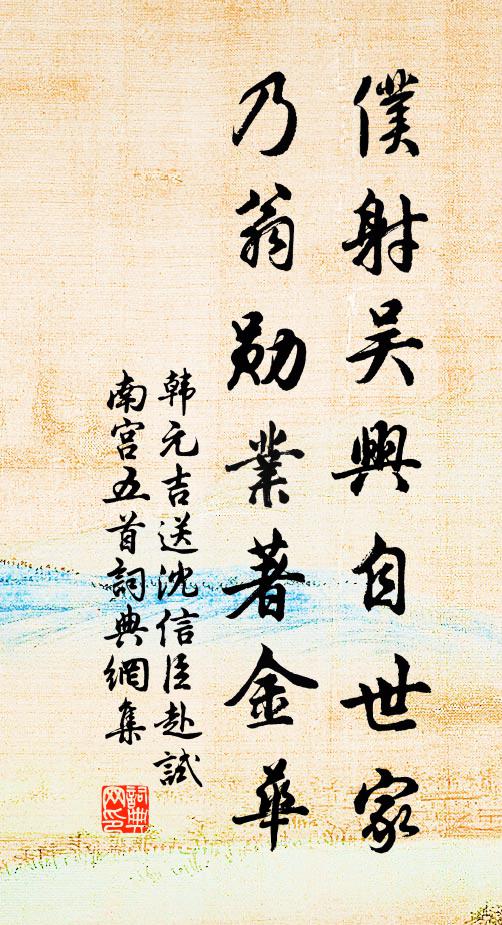 僕射吴興自世家
乃翁勛業著金華
韩元吉送沈信臣赴試
南宫五首詞典網集
詞典
网印